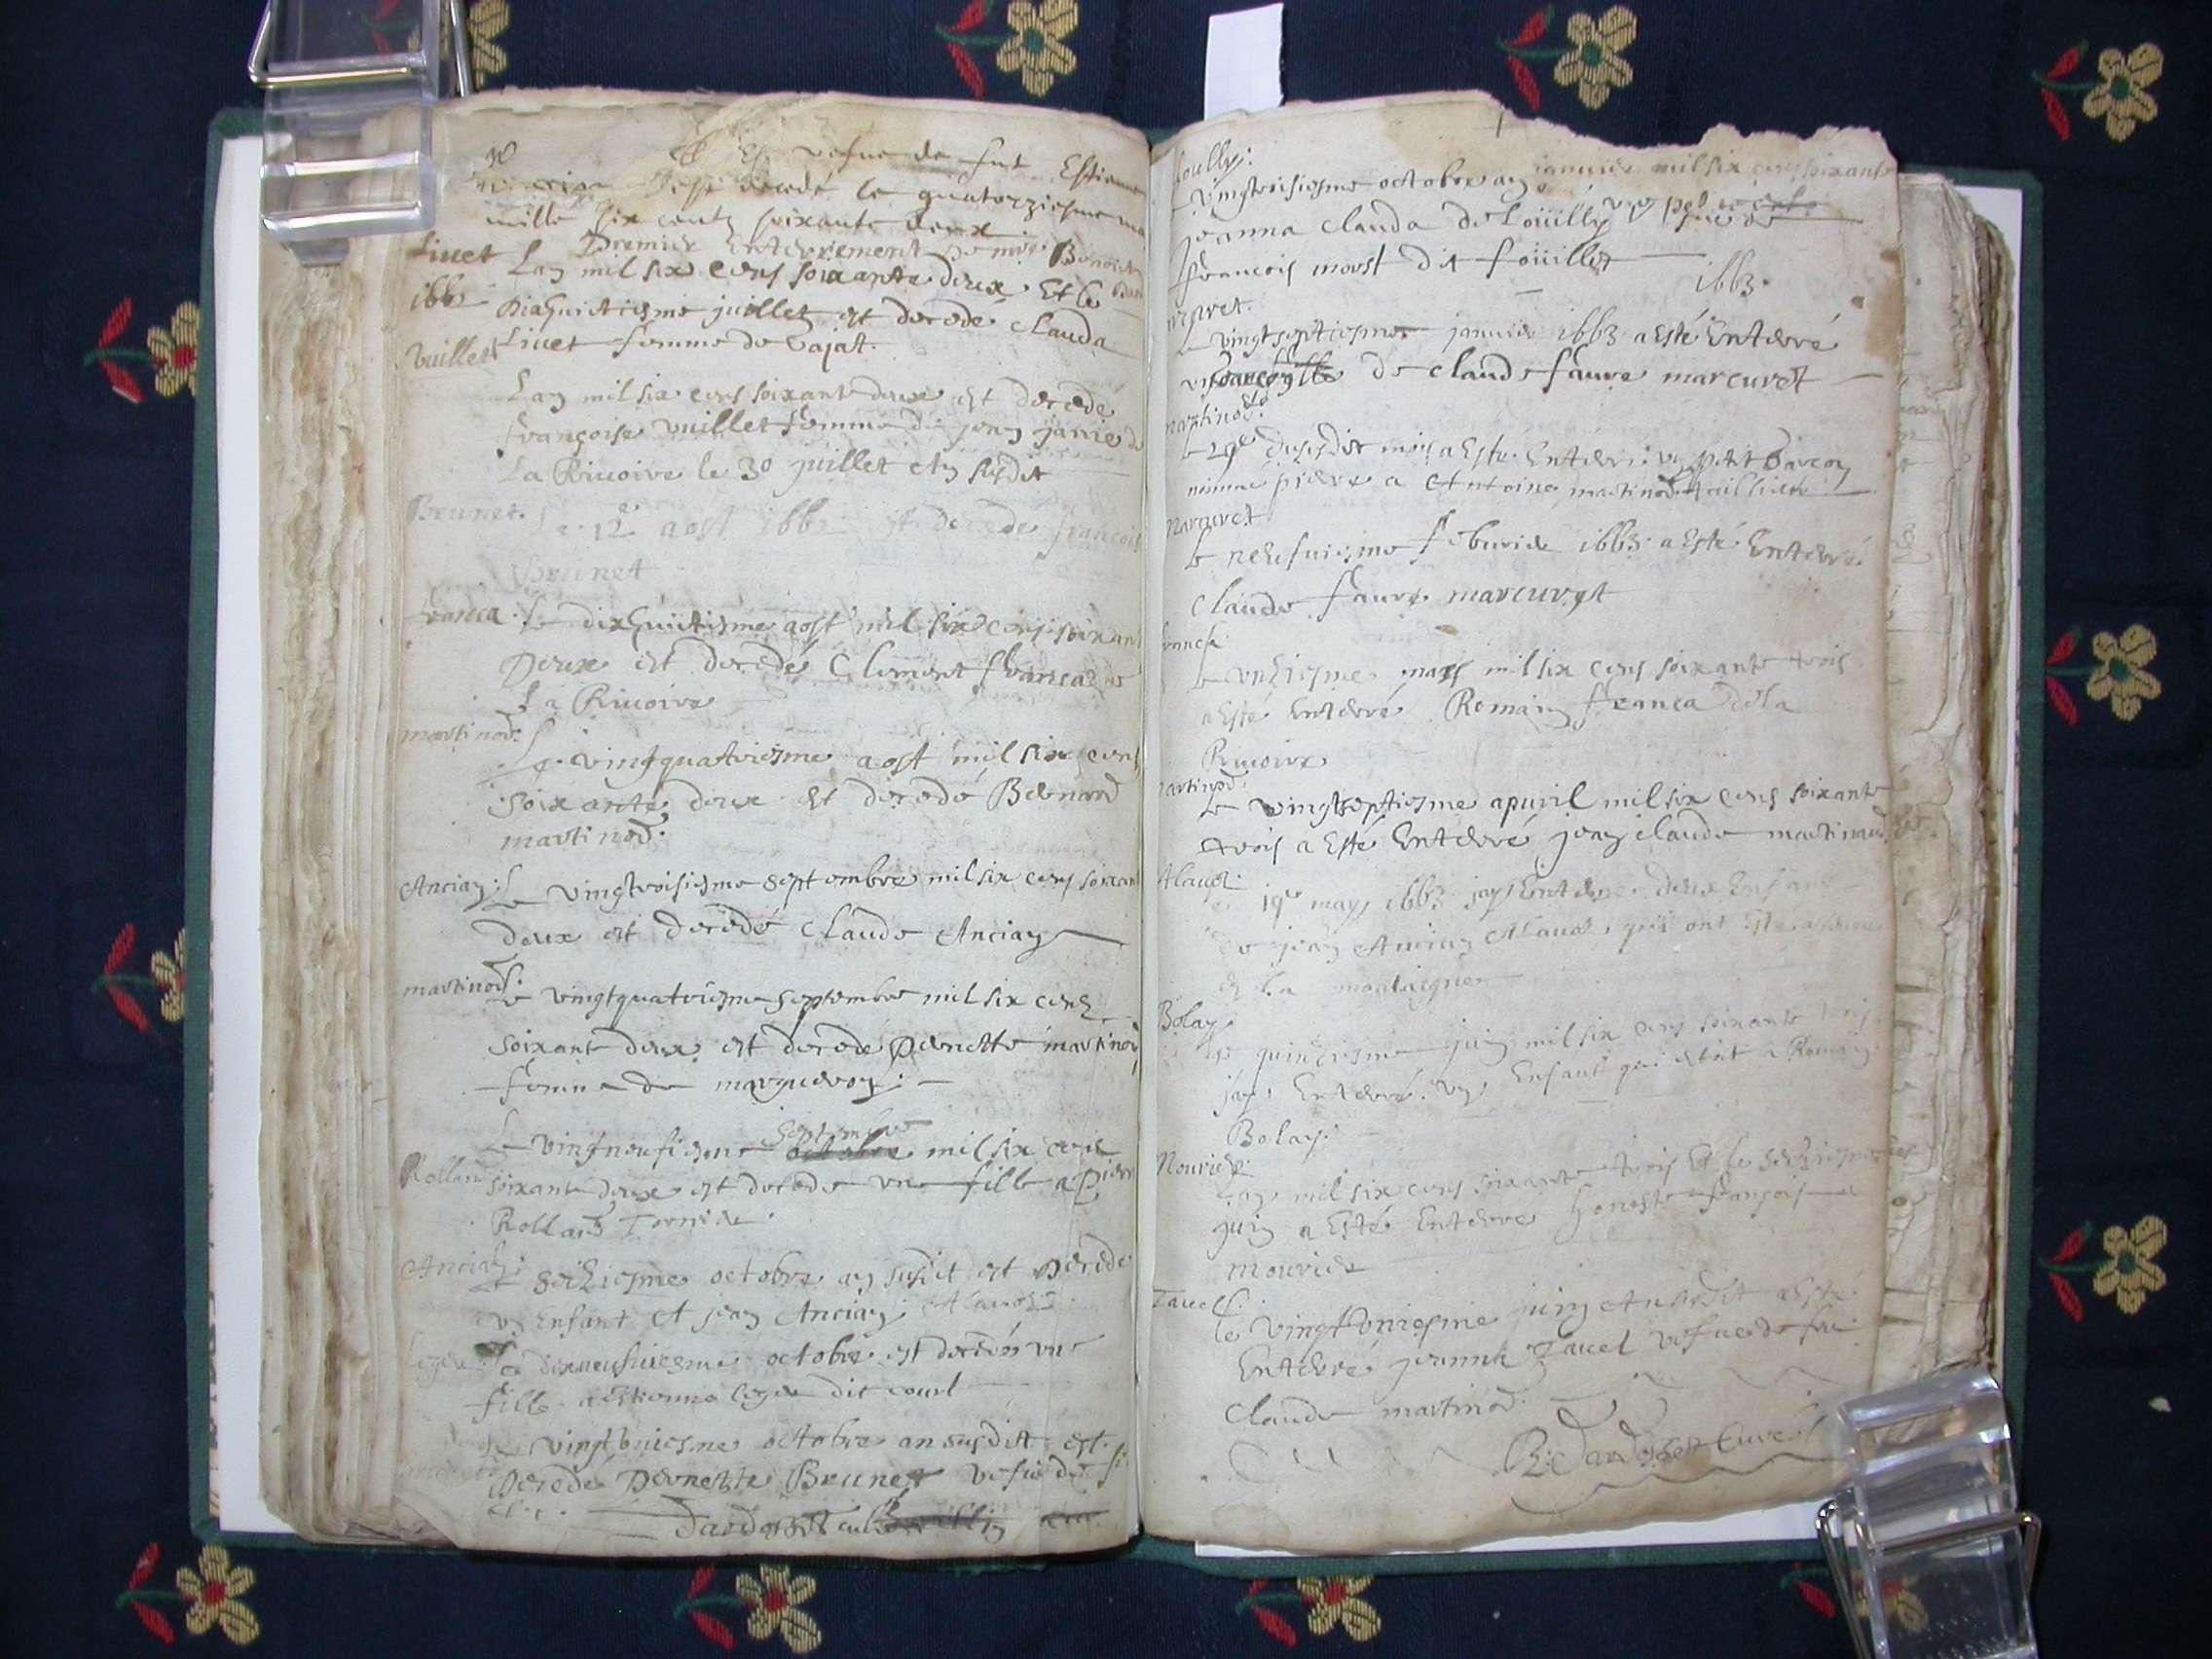 30
vefue de fut Estienne
est decedé le quatorziesme
mille six centz soixante deux
Premier Enterrement de mre Benoict
Liuet
Lan mil six cens soixante deux et le
1662
dixhuictiesme juillet est decedé Clauda
Liuet femme de Cajat.
Vuillet
Lan mil six cens soixante deux est decedé
françoise vuillet femme de jean janie de
La Riuoire le 30 juillet An susdit
Brunet.
Le 12e aost 1662 est decedé francois
Brunet
franca. Le dixhuictiesme aost mil six cens soixante
Deux est decedé Clement franca de
La Riuoire
martinod.
Le vingtquatriesme aost mil six cens
soixante deux est decedé Bernard
martinod.
Ancian. Le vingtroisiesme septembre mil six cens soixant
deux est decedé Claude Ancian
martinod.
Le vingtquatriesme septembre mil six cens
soixante deux est decedé Pernette martinod
femme de margueron.
septembre
Le vingtneufiesme octobre mil six cens
Rolland soixante deux est decedé une fille a Pierre
Rolland Tornier.
Ancian.
Le seiziesme octobre an susdit est decedé
un Enfant A jean Ancian Alauoz
Leger. Le dixneufuiesme octobre est decedée une
fille a Estienne leger dit court
Le vingtuniesme octobre an susdit est
Decedé Pernette Brunet vefue de
Dardosset curé
fouilly.
vingtroisiesme octobre an
januier mil six cens soixante
Joanna Clauda de Louilly
francois morel dit fouillet
1663.
Le vingtseptiesme januier 1663 a Esté Enterré
de claude faure marcuret
martinod.
Le 29e dususdit mois a Esté Enterré un petit Garcon
nommé pierre a Antoine martinod
Marcuret
Le neufuiesme feburier 1663 a Esté Enterré
Claude faure marcuret
franca
Le unziesme mars mil six cens soixante trois
a Esté Enterré Romain franca dela
Riuoire
martinod.
Le vingtseptiesme apuril mil six cens soixante
trois a Esté Enterré jean claude martinaud
Alauoz.
Le 19e may 1663 jay Enterré deux Enfans
de jean Ancian Alauoz, qui ont Esté
la montaigne
Bolay
Le quinziesme juin mil six cens soixante trois
jay Enterré un Enfant qui estoit a Romain
Bolay.
Mourier.
Lan mil six cens soixante trois Et le seiziesme
juin a Esté Enterré honeste françois
mourier
Tauel.
Le vingtuniesme juin An susdit a esté
Enterré jeanne Tauel vefue de feu
Claude martinod.
Dardosset Curé